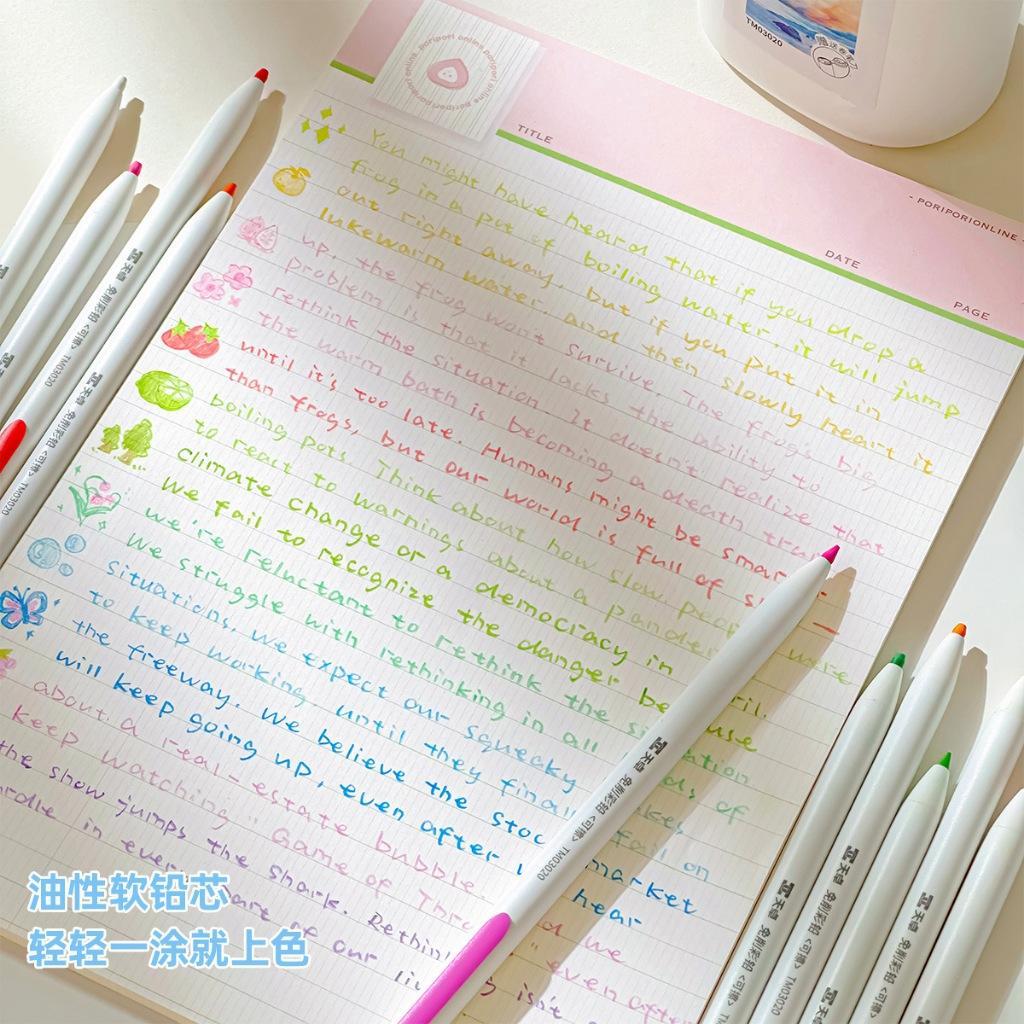 TM03020
poripori online poripori online
TITLE
- PORIPORIONLINE -
DATE
PAGE
You might have heard that if you drop a
frog in a pot of boiling water it will jump
out right away, but if you put it in
lukewarm water, and then slowly heart it
up, the frog won't survive. The frog's big
problem is that it lacks the ability to
rethink the situation. It doesn't realize that
the warm bath is becoming a death
until it's too late. Humans might be
than frogs, but our world is full of
boiling pots. Think about how slow people were
to react to warnings about a
climate change or a democracy in
We fail to recognize the danger
we're reluctant to rethink the
We struggle with rethinking in all of
situations. We expect our squeaky
to keep working until they fail on
the freeway. We believe the market
will keep going up, even after hear
about a real-estate bubble. we
keep watching "Game of even after
the show jumps the shark.
in every part of our isn't
天卓 免削彩铅<可擦> TM03020
天卓 免削彩铅<可擦> TM03020
天卓 免削彩铅<可擦> TM03020
天卓 免削彩铅<可擦> TM03020
天卓 免削彩铅<可擦> TM03020
天卓 免削彩铅<可擦>
油性软铅芯
轻轻一涂就上色